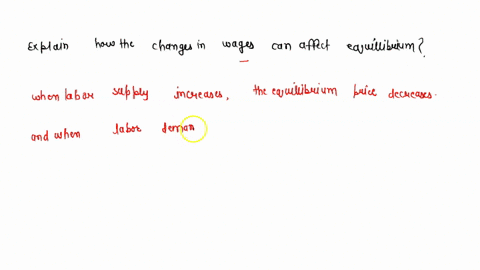 Explain how the changes in wages can affect equillibrium?
when labor supply increases, the equillibrium price decreases.
and when labor deman